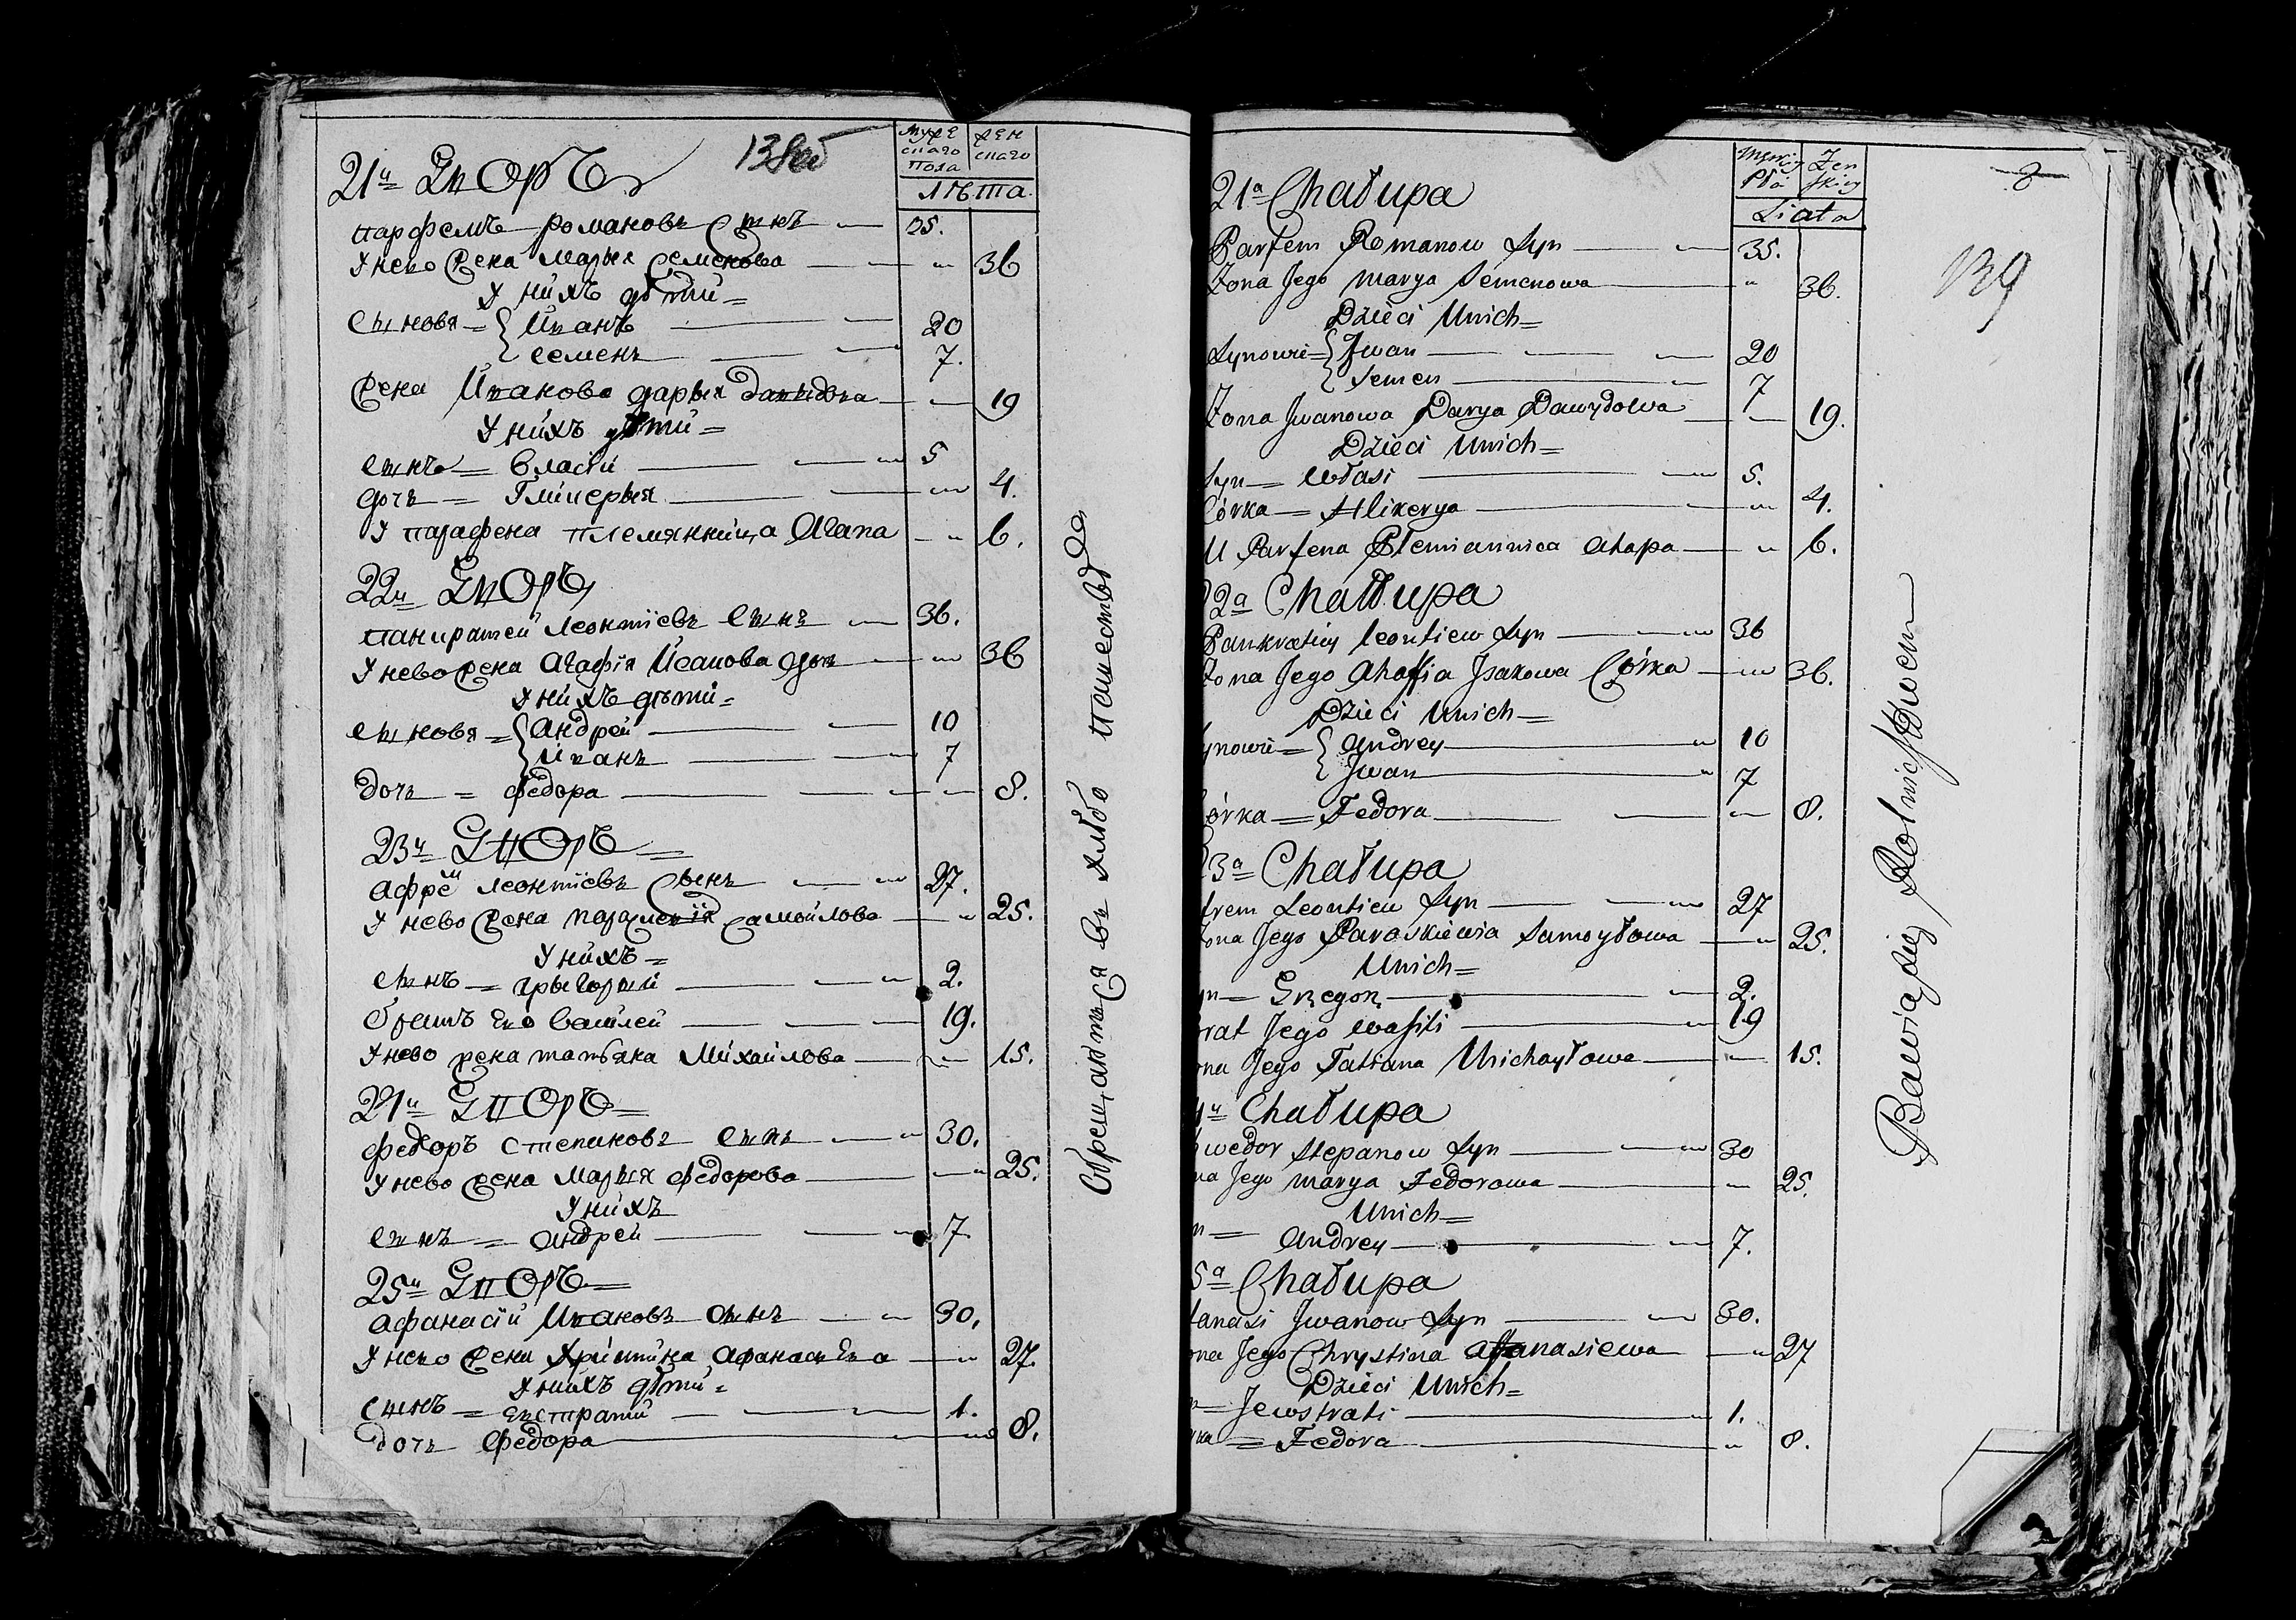 138об
мужескаго пола
женскаго
лѣта
21й Дворъ
Парфемъ Романовъ сынъ 35.
У нево жена Марья Семенова 36
У нихъ дѣти
сыновя Иванъ 20
Семенъ 7.
жена Иванова Дарья Давыдова 19
У нихъ дѣти
сынъ Власій 5
дочь Гликерья 4.
У Парафена племянница Агапа 6.
22й Дворъ
Панкратей Леонтіевъ сынъ 36.
У нево жена Агафія Исакова дочь 36
У нихъ дѣти
сыновя Андрей 10
Иванъ 7
дочь Федора 8.
23й Дворъ
Афремъ Леонтіевъ сынъ 27.
У нево жена Парасмевія Самойлова 25.
У нихъ
сынъ Григорий 2.
братъ ево Василей 19.
У нево жена татьяна Михайлова 15.
24й Дворъ
Федоръ Степановъ сынъ 30.
У нево жена Марья Федорова 25.
У нихъ
сынъ Андрей 7
25й Дворъ
Афанасій Ивановъ сынъ 30.
У нево жена Христина Афанасьева 27.
У нихъ дѣти
сынъ Евстратий 1.
дочь Федора 8.
Обращаются въ хлѣбопашествѣ
139
Męskiey Płci
Żenskiey
Liata
21a Chałupa
Parfem Romanow syn 35.
Żona Jego Marya Semenowa 36.
Dzieci Unich
Synowie Jwan 20
Semen 7
Żona Jwanowa Darya Dawydowa 19.
Dzieci Unich
Syn Własi 5.
Córka Hlikerya 4.
U Parfena Plemiannica Ahapa 6.
22a Chałupa
Pankratiey Leontiew syn 36
Żona Jego Ahafia Jsakowa Córka 36.
Dzieci Unich
ynowie Andrey 10
Jwan 7
órka Fedora 8.
3a Chałupa
frem Leontiew syn 27
ona Jego Paraskiewia Samoyłowa 25.
Unich
yn Grzegorz 2.
rat Jego Wasili 19
ona Jego Tatiana Michayłowa 15.
4a Chałupa
wedor Stepanow syn 30
na Jego Marya Fedorowa 25.
Unich
n Andrey 7.
5a Chałupa
fanasi Jwanow syn 30.
ona Jego Chrystina Afanasiewa 27
Dzieci Unich
n Jewstrati 1.
rka Fedora 8.
Bawią się Rolnictwem